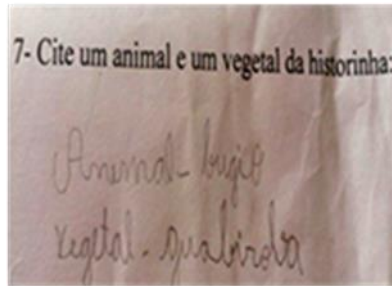 7- Cite um animal e um vegetal da historinha:
Animal- bugio
Vegetal- guabiroba